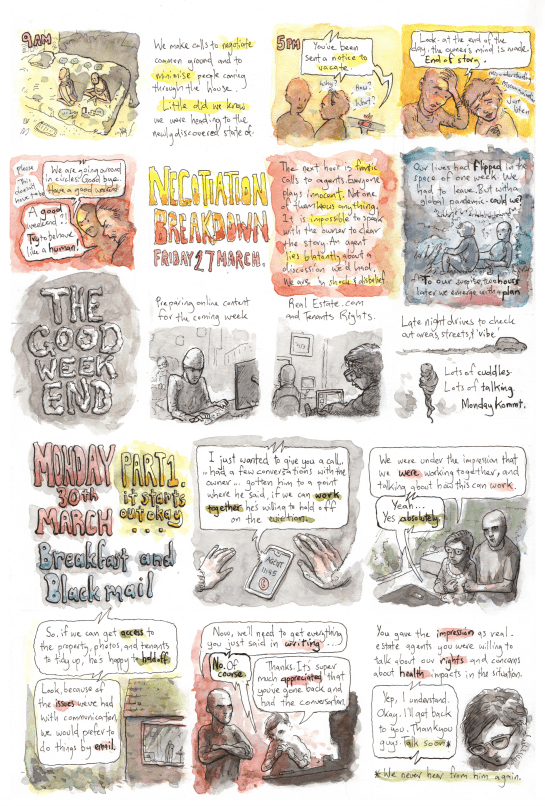 9AM
We make calls to negotiate
common ground, and to
minimise people coming
through the house.
Little did we know
we were heading to the
newly discovered state of..
5PM
You've been
sent a notice to
vacate.
Why?
How?
What?
Look.. at the end of the
day, the owner's mind is made.
End of story.
Just
listen
please
doesn't
have to be
We are going around
in circles. Good bye.
Have a good weekend
A good
weekend?!
Try to behave
like a human!
NEGOTIATION
BREAKDOWN
FRIDAY 27 MARCH.
The next hour is frantic
calls to agents. Everyone
plays innocent. Not one
of them does anything.
It is impossible to speak
with the owner to clear
the story. An agent
lies blatantly about a
discussion we'd had.
We are in shock & disbelief
Our lives had flipped in the
space of one week. We
had to leave. But with a
global pandemic - could we?
To our surprise, two hours
later we emerge with a plan
THE
GOOD
WEEK
END
Preparing online content
for the coming week
Real Estate.com
and Tenants Rights.
Late night drives to check
out areas, streets, & 'vibe'
Lots of cuddles
Lots of talking.
Monday Kommt.
MONDAY
30th
MARCH
PART 1.
it starts
out okay
....
Breakfast and
Blackmail
I just wanted to give you a call..
..had a few conversations with the
owner... gotten him to a point
where he said, if we can work
together he's willing to hold off
on the eviction.
AGENT
11:45
We were under the impression that
we were working together, and
talking about how this can work.
Yeah...
Yes absolutely.
So, if we can get access to
the property, photos, and tenants
to tidy up, he's happy to hold off
Look, because of
the issues we've had
with communication,
we would prefer to
do things by email.
Now, we'll need to get everything
you just said in writing...
No. Of
course.
Thanks. It's super
much appreciated that
you've gone back and
had the conversation.
You gave the impression as real-
estate agents you were willing to
talk about our rights and concerns
about health impacts in the situation.
Yep, I understand.
Okay. I'll get back
to you. Thankyou
guys. Talk soon*
* We never hear from him again.